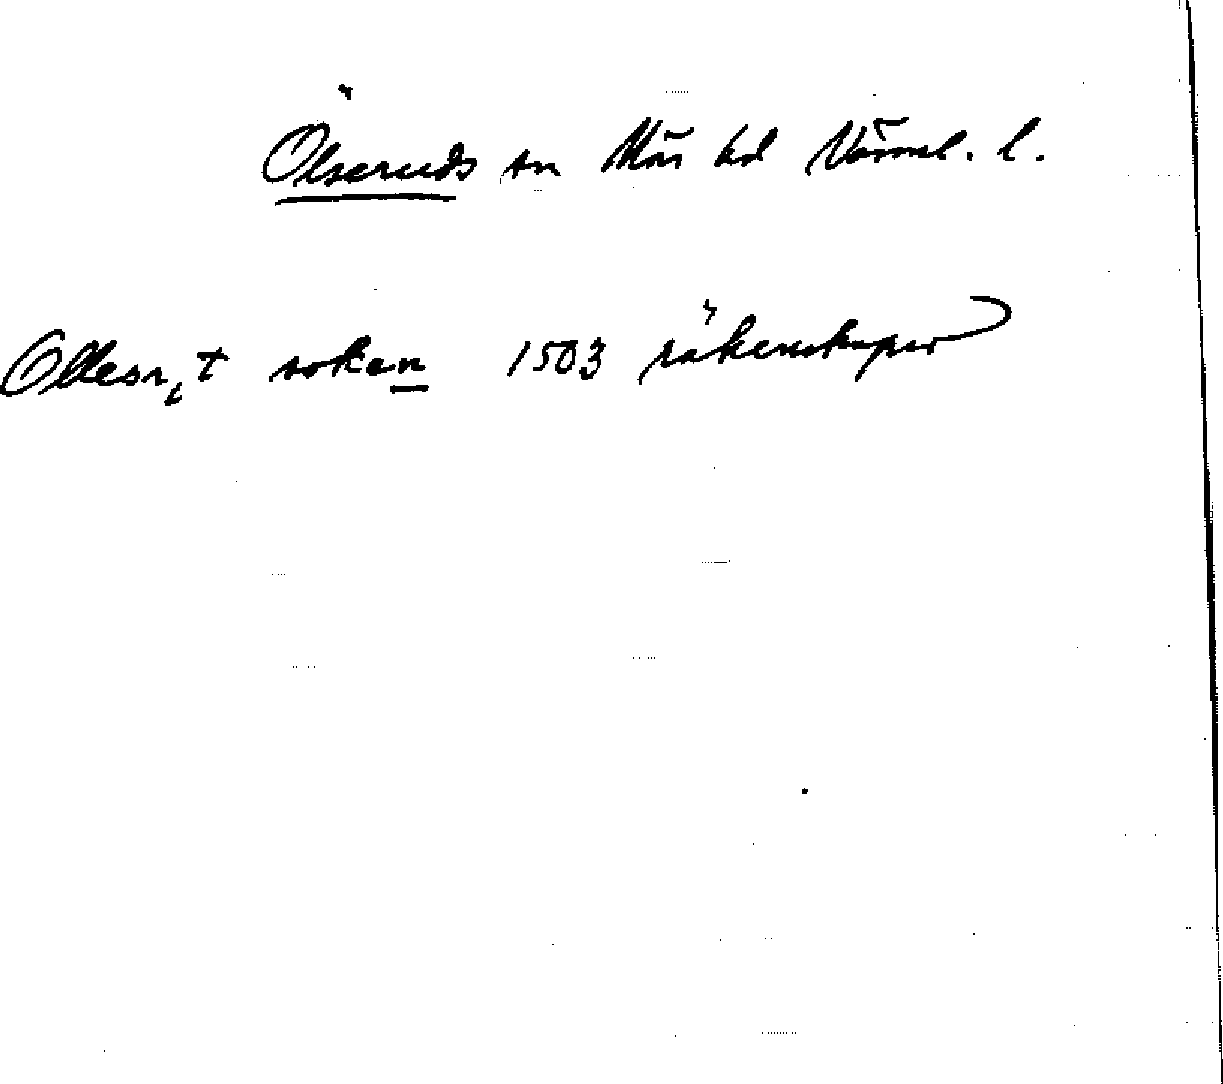 Ölseruds sn Näs hd Värml. l.
Ollesr,t soken 1503 räkenskaper